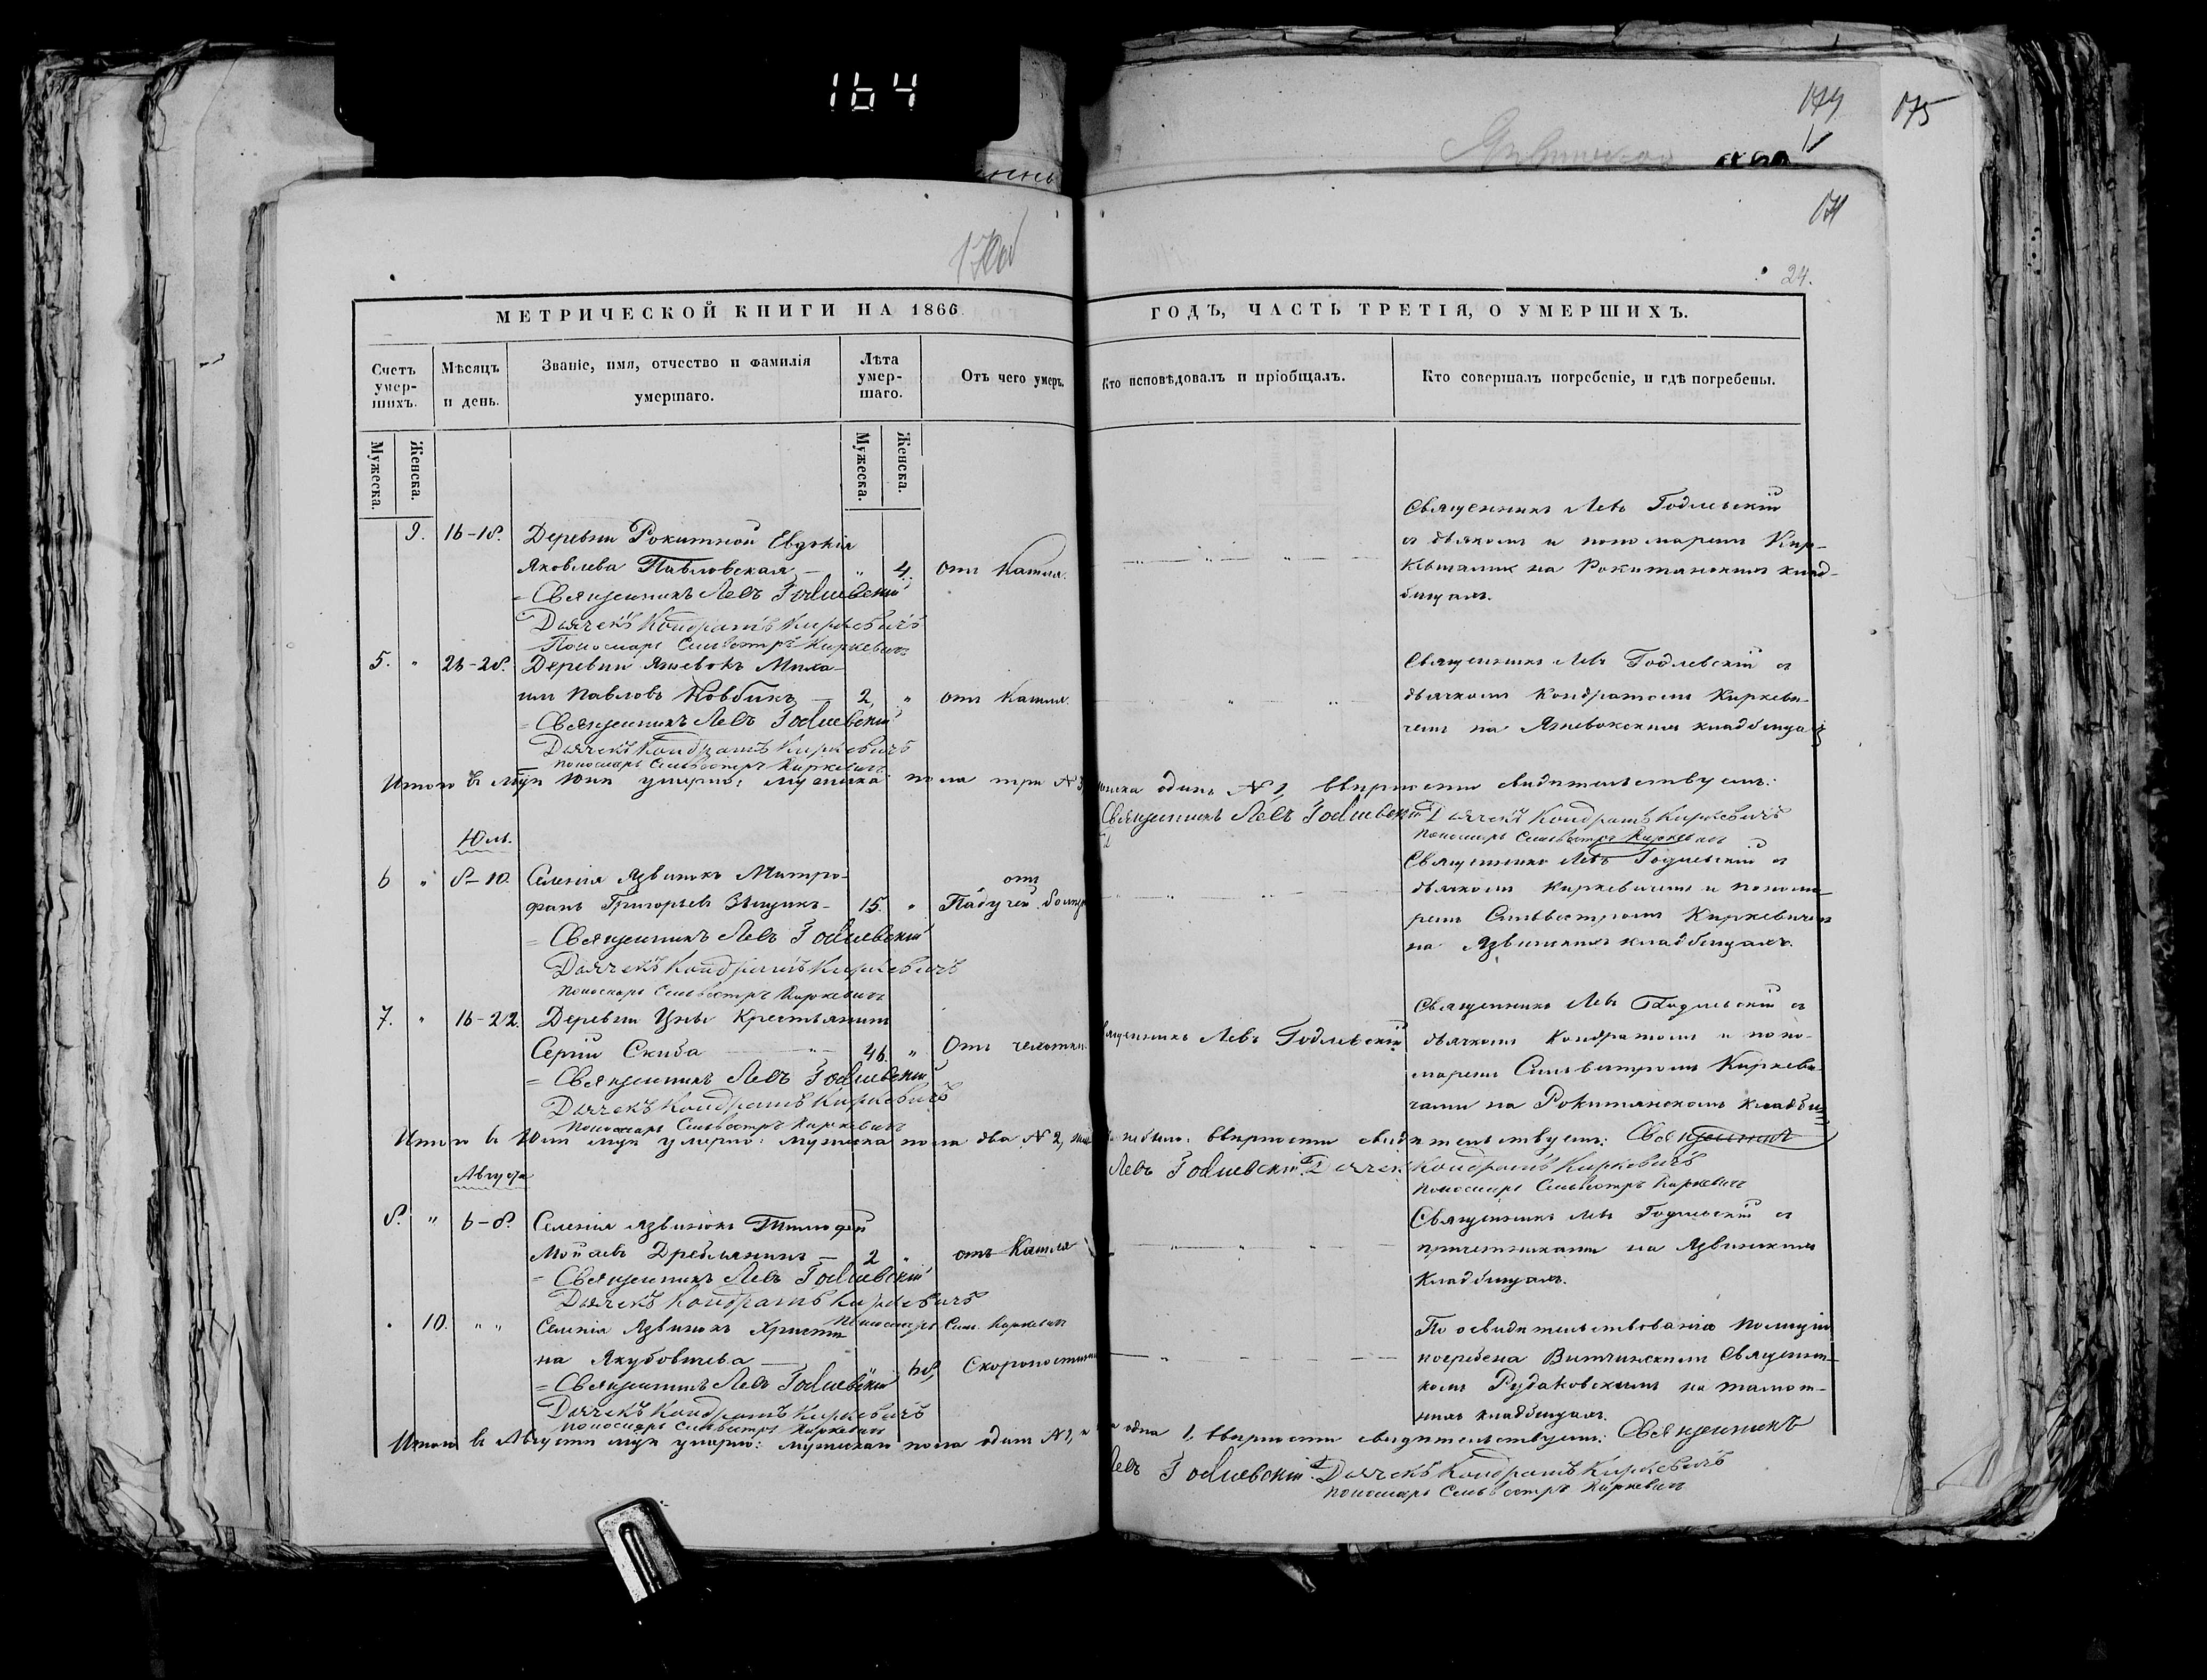 164
175
174
171
170об
24.
МЕТРИЧЕСКОЙ КНИГИ НА 1866
ГОДЪ, ЧАСТЬ ТРЕТІЯ, О УМЕРШИХЪ.
Счетъ умер-
шихъ.
Мѣсяцъ
и день.
Званіе, имя, отчество и фамилія
умершаго.
Лѣта
умер-
шаго.
Отъ чего умеръ.
Кто исповѣдовалъ и пріобщалъ.
Кто совершалъ погребеніе, и гдѣ погребены.
Мужеска.
Женска.
Мужеска.
Женска.
9. 16-18. Деревни Рокитной Евдокія
Яковлева Павловская — " 4. отъ Кашля.
= Священникъ Левъ Годлевскій
Дьячекъ Кондратъ Киркевичъ
Пономарь Сильвестръ Киркевичъ
Священникъ Левъ Годлевскій
съ дьякомъ и пономаремъ Кир-
на Рокитянскихъ клад-
бищахъ.
5. " 26-28. Деревни Яжевокъ Миха-
илъ Павловъ Ковбикъ — 2, " отъ Кашля.
= Священникъ Левъ Годлевскій
Дьячекъ Кондратъ Киркевичъ
пономарь Сильвестръ Киркевичъ
Священникъ Левъ Годлевскій съ
дьячкомъ Кондратомъ Киркеви-
чемъ на Яжевокскихъ кладбищахъ
Итого въ Іюнѣ умерло: мужеска пола три №3,
женска одинъ №1, ввѣрности свидѣтельствуемъ:
Священникъ Левъ Годлевскій Дьячекъ Кондратъ Киркевичъ
пономарь Сильвестръ Киркевичъ
Юль.
6 " 8-10. Селенія Язвинокъ Митро-
фанъ Григорьевъ — 15. " отъ
Падучей болѣзни
= Священникъ Левъ Годлевскій
Дьячекъ Кондратъ Киркевичъ
пономарь Сильвестръ Киркевичъ
Священникъ Левъ Годлевскій съ
дьячкомъ Киркевичемъ и понома-
ремъ Сильвестромъ Киркевичемъ
на Язвинскихъ кладбищахъ.
7. " 16-22. Деревни Цны Крестьянинъ
Сергій Скиба — 46. " Отъ чахотки.
= Священникъ Левъ Годлевскій
Дьячекъ Кондратъ Киркевичъ
пономарь Сильвестръ Киркевичъ
Священникъ Левъ Годлевскій
Священникъ Левъ Годлевскій съ
дьячкомъ Кондратомъ и поно-
маремъ Сильвестромъ Киркеви-
чами на Рокитянскомъ кладбищѣ
Итого въ Юлѣ умерло: мужеска пола два №2,
небыло. ввѣрности свидѣтельствуемъ: Священникъ
Левъ Годлевскій Дьячекъ Кондратъ Киркевичъ
пономарь Сильвестръ Киркевичъ
Августъ
8. " 6-8. Селенія Язвинокъ Тимофей
Дреблянинъ — 2 " отъ Кашля
= Священникъ Левъ Годлевскій
Дьячекъ Кондратъ Киркевичъ
пономарь Сил. Киркевичъ
Священникъ Левъ Годлевскій съ
причетниками на Язвинскихъ
кладбищахъ.
10. " " Селенія Язвинокъ Христи-
на Якубовичева — 68, Скоропостижно
= Священникъ Левъ Годлевскій
Дьячекъ Кондратъ Киркевичъ
пономарь Сильвестръ Киркевичъ
По освидѣтельствованіи полиціи
погребена Витчинскимъ Священни-
комъ Рудаковскимъ на тамош-
нихъ кладбищахъ.
Итого въ Августѣ умерло: мужеска пола одинъ №1,
одна 1, ввѣрности свидѣтельствуемъ: Священникъ
Левъ Годлевскій Дьячекъ Кондратъ Киркевичъ
пономарь Сильвестръ Киркевичъ